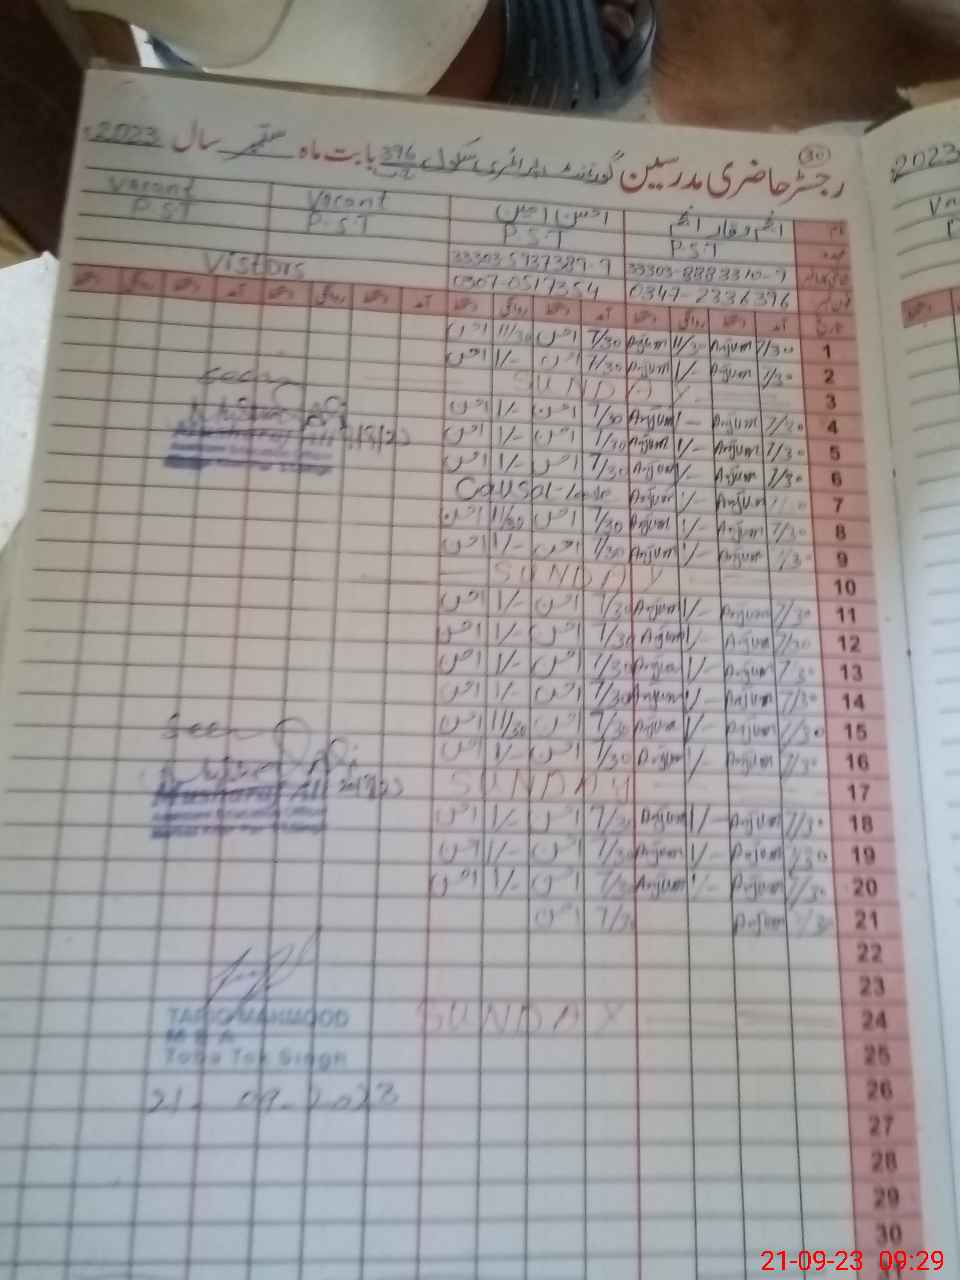 رجسٹر حاضری مدرسین گورنمنٹ پرائمری سکول 396 بابت ماہ ستمبر سال 2023
30
انجم وقار انجم احسن Vacant Vacant
P.S.T P.S.T P.S.T P.S.T
33303-8883310-9 33303-5937389-9 Vistiors
0347-2336396 0307-0517354
آمد دستخط روانگی دستخط آمد دستخط روانگی دستخط آمد دستخط روانگی دستخط آمد دستخط روانگی دستخط
1 7/30 Anjum 11/30 Anjum 7/30 احسن 11/30 احسن
2 7/30 Anjum 1/- Anjum 7/30 احسن 1/- احسن
3 SUNDAY
4 7/30 Anjum 1/- Anjum 7/30 احسن 1/- احسن
5 7/30 Anjum 1/- Anjum 7/30 احسن 1/- احسن
6 7/30 Anjum 1/- Anjum 7/30 احسن 1/- احسن
7 Anjum 1/- Anjum Causal-leave
8 7/30 Anjum 1/- Anjum 7/30 احسن 11/30 احسن
9 7/30 Anjum 1/- Anjum 7/30 احسن 1/- احسن
10 SUNDAY
11 7/30 Anjum 1/- Anjum 7/30 احسن 1/- احسن
12 7/30 Anjum 1/- Anjum 7/30 احسن 1/- احسن
13 7/30 Anjum 1/- Anjum 7/30 احسن 1/- احسن
14 7/30 Anjum 1/- Anjum 7/30 احسن 1/- احسن
15 7/30 Anjum 1/- Anjum 7/30 احسن 11/30 احسن
16 7/30 Anjum 1/- Anjum 7/30 احسن 1/- احسن
17 SUNDAY
18 7/30 Anjum 1/- Anjum 7/30 احسن 1/- احسن
19 7/30 Anjum 1/- Anjum 7/30 احسن 1/- احسن
20 7/30 Anjum 1/- Anjum 7/30 احسن 1/- احسن
21 7/30 Anjum 7/30 احسن
22
23
24 SUNDAY
25
26
27
28
29
30
Seen
Seen
TARIQ MAHMOOD
M E A
Toba Tek Singh
21-09-2023
2023
21-09-23 09:29